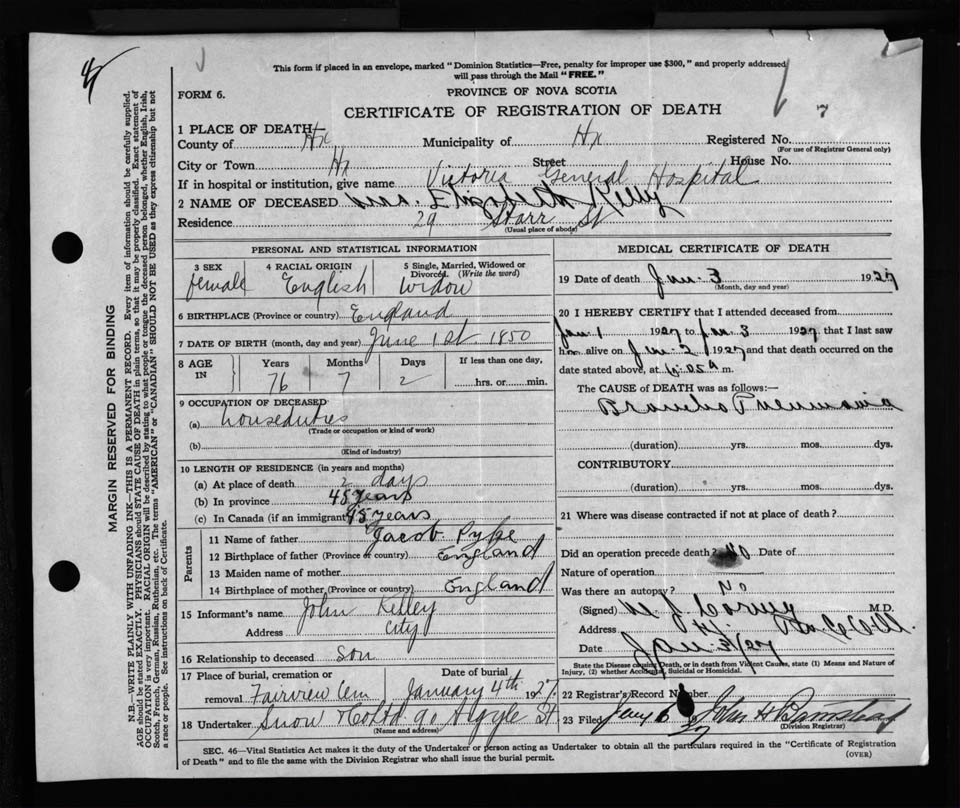 This form if placed in an envelope, marked "Dominion Statistics—Free, penalty for improper use $300," and properly addressed
will pass through the Mail "FREE."
FORM 6.
PROVINCE OF NOVA SCOTIA
CERTIFICATE OF REGISTRATION OF DEATH
1 PLACE OF DEATH
County of Hx Municipality of Hx Registered No.
(For use of Registrar General only)
City or Town Hx Street House No.
If in hospital or institution, give name Victoria General Hospital
2 NAME OF DECEASED Mrs. Elizabeth Kelly
Residence 29 Starr St
(Usual place of abode)
PERSONAL AND STATISTICAL INFORMATION
3 SEX 4 RACIAL ORIGIN 5 Single, Married, Widowed or Divorced. (Write the word)
female English Widow
6 BIRTHPLACE (Province or country) England
7 DATE OF BIRTH (month, day and year) June 1st 1850
8 AGE IN Years Months Days If less than one day,
76 7 2 hrs. or min.
9 OCCUPATION OF DECEASED
(a) houseduties
(Trade or occupation or kind of work)
(b)
(Kind of industry)
10 LENGTH OF RESIDENCE (in years and months)
(a) At place of death 2 days
(b) In province 45 years
(c) In Canada (if an immigrant) 45 years
Parents
11 Name of father Jacob Pyke
12 Birthplace of father (Province or country) England
13 Maiden name of mother
14 Birthplace of mother (Province or country) England
15 Informant's name John Kelley
Address City
16 Relationship to deceased son
17 Place of burial, cremation or removal Date of burial
Fairview Cem January 4th 1927.
18 Undertaker Snow & Co Ltd 90 Argyle St
(Name and address)
MEDICAL CERTIFICATE OF DEATH
19 Date of death Jan. 3 1927
(Month, day and year)
20 I HEREBY CERTIFY that I attended deceased from
Jan 1 1927 to Jan 3 1927 that I last saw
h alive on Jan 2 1927 and that death occurred on the
date stated above, at 6.05 a m.
The CAUSE of DEATH was as follows:—
Broncho Pneumonia
(duration) yrs. mos. dys.
CONTRIBUTORY
(duration) yrs. mos. dys.
21 Where was disease contracted if not at place of death?
Did an operation precede death? No Date of
Nature of operation
Was there an autopsy? No
(Signed) M.D.
Address
Date Jan. 3/27
State the Disease causing Death, or in death from Violent Causes, state (1) Means and Nature of Injury, (2) whether Accidental, Suicidal or Homicidal.
22 Registrar's Record Number
23 Filed Jany 6 27 John H Barnstead
(Division Registrar)
SEC. 46—Vital Statistics Act makes it the duty of the Undertaker or person acting as Undertaker to obtain all the particulars required in the "Certificate of Registration
of Death" and to file the same with the Division Registrar who shall issue the burial permit. (OVER)
MARGIN RESERVED FOR BINDING
N.B.—WRITE PLAINLY WITH UNFADING INK—THIS IS A PERMANENT RECORD. Every item of information should be carefully supplied.
AGE should be stated EXACTLY. PHYSICIANS should STATE CAUSE OF DEATH in plain terms, so that it may be properly classified. Exact statement of
OCCUPATION is very important. RACIAL ORIGIN will be described by stating to what people or tongue the deceased person belonged, whether English, Irish,
Scotch, French, German, Russian, Ruthenian, etc. The terms "AMERICAN" or "CANADIAN" SHOULD NOT BE USED as they express citizenship but not
a race or people. See instructions on back of Certificate.